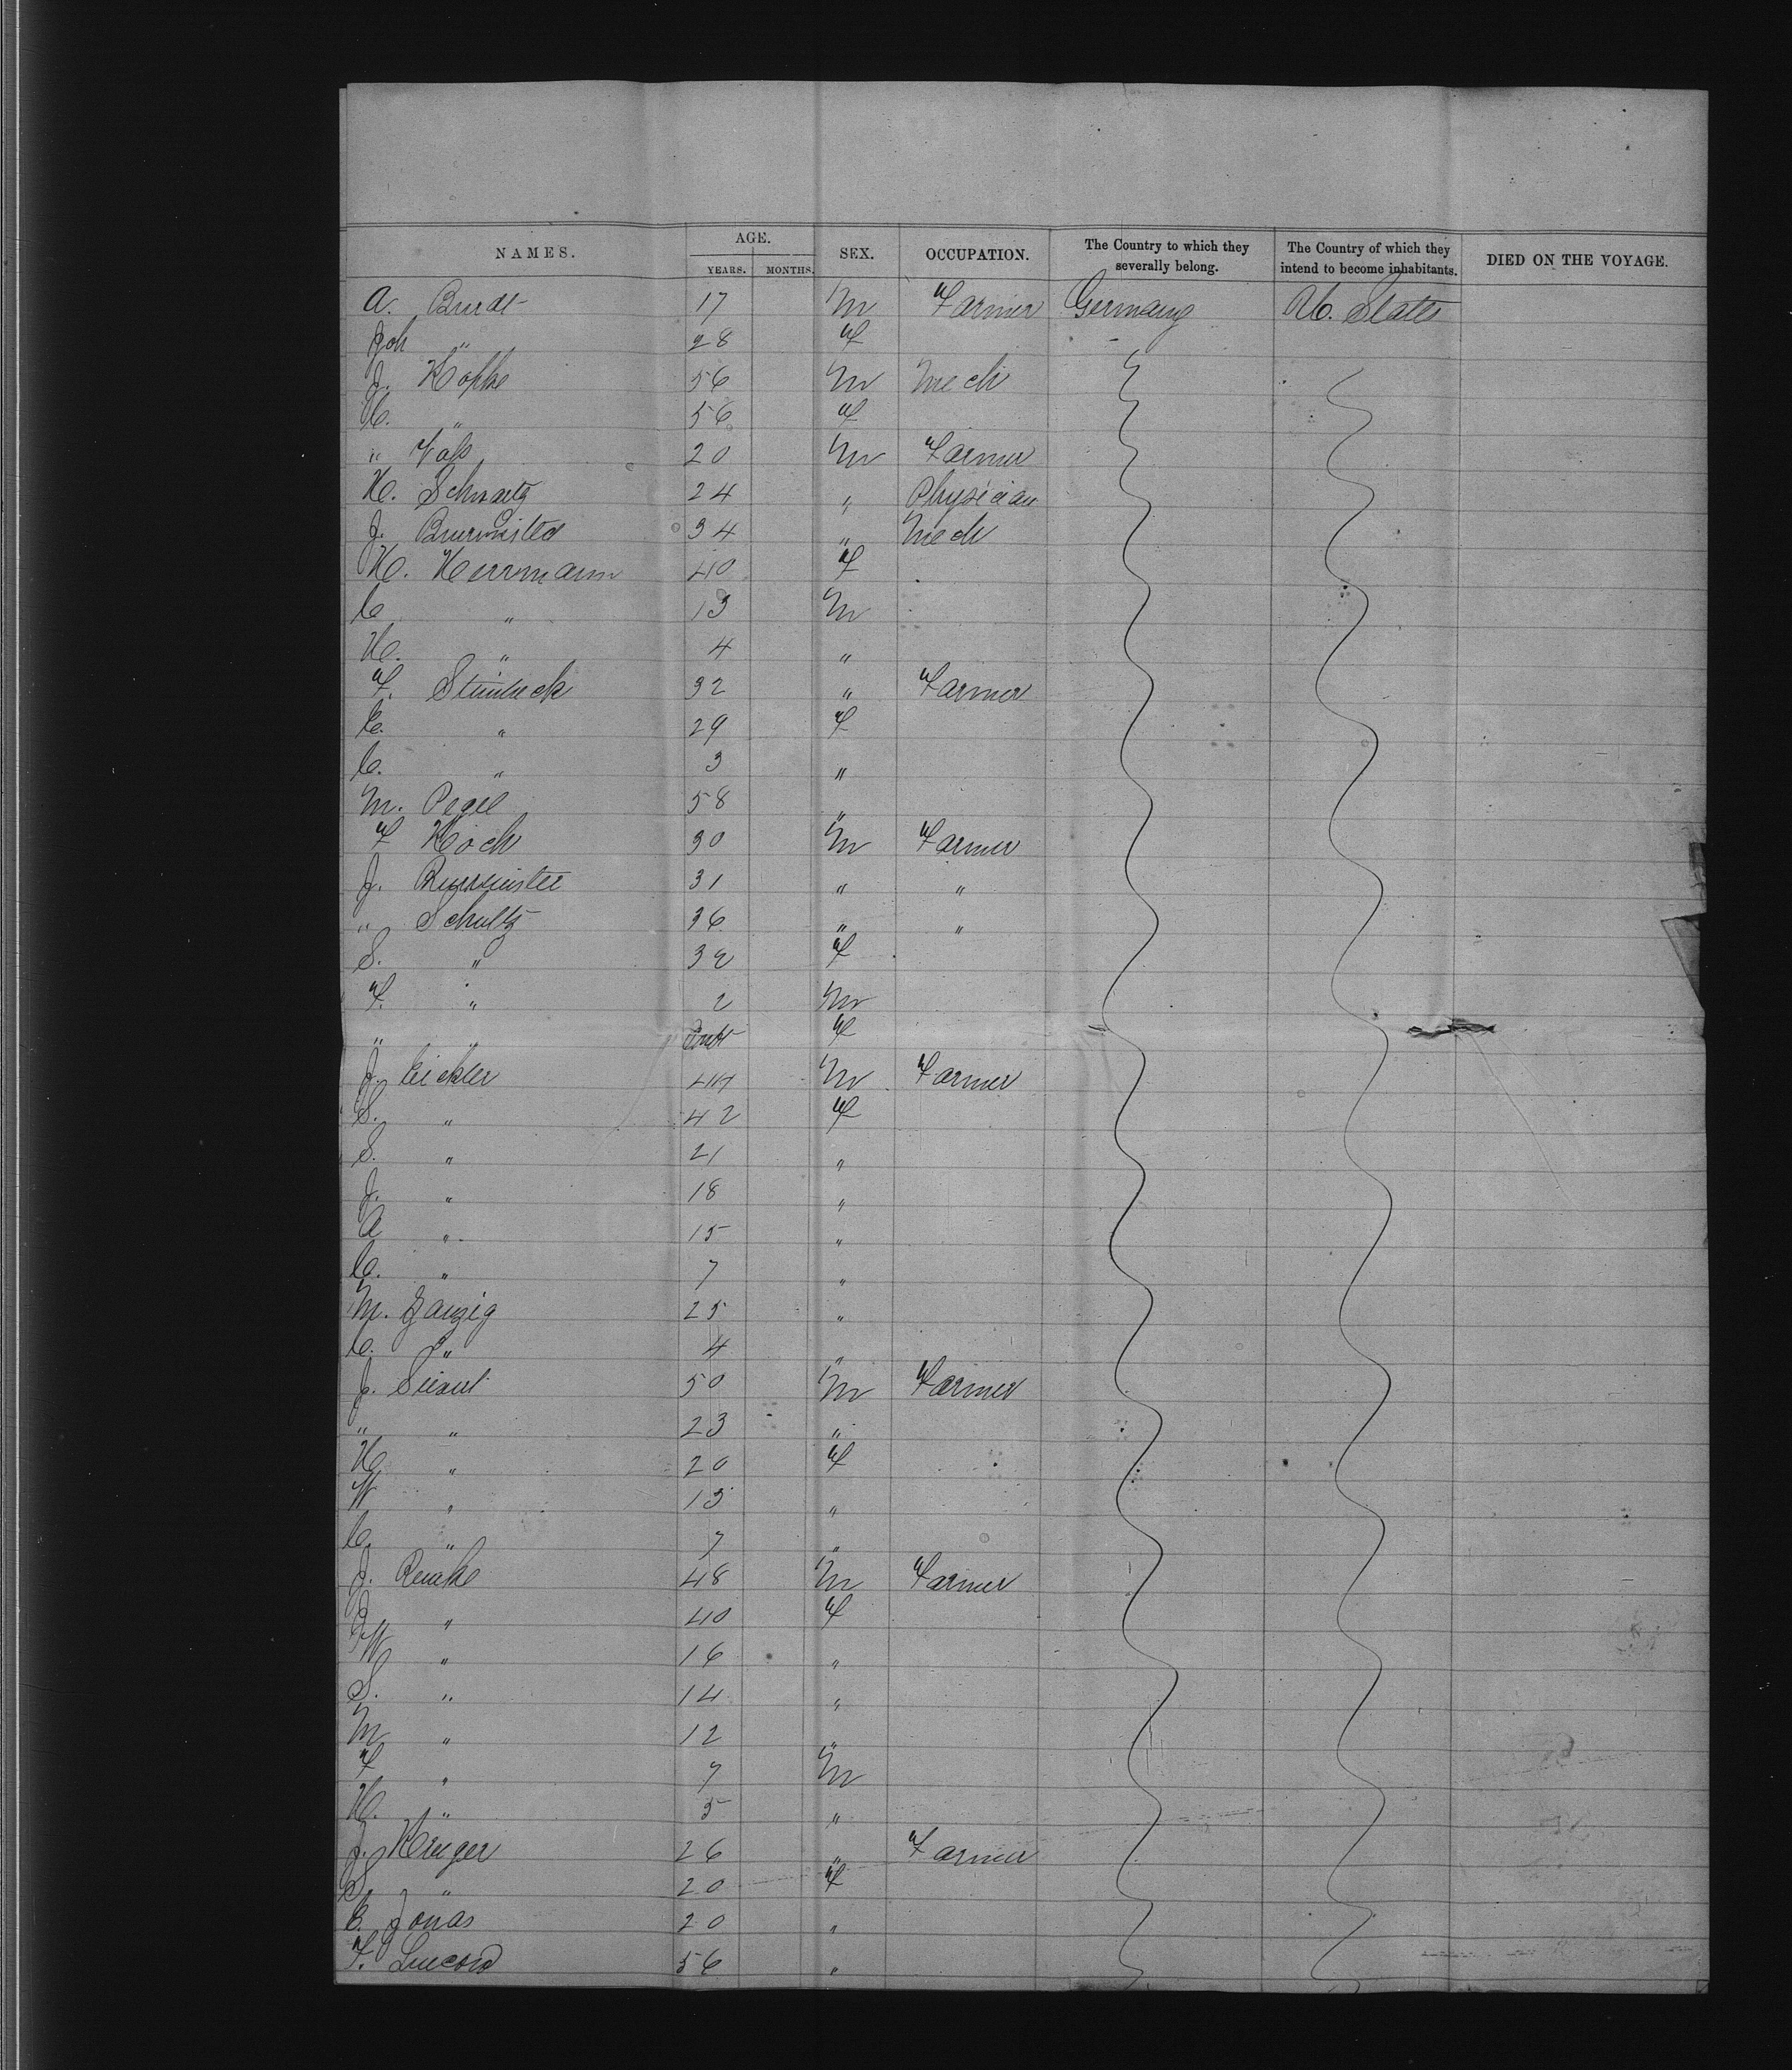 NAMES. AGE. YEARS. MONTHS. SEX. OCCUPATION. The Country to which they severally belong. The Country of which they intend to become inhabitants. DIED ON THE VOYAGE.
A. 17 M Farmer Germany U. States
Joh " 28 F
J. Kopke 56 M Mech
C. " 56 F
" Voss 20 M Farmer
H. Schwartz 24 " Physician
J. 34 " Mech
H. Herrmann 40 F
C " 13 M
H. " 4 "
F. Steinbeck 32 " Farmer
E. " 29 F
C. " 3 "
M. Pegel 58 "
F Koch 30 M Farmer
J. Burmeister 31 " "
" Schultz 36 " "
S. " 32 F
F. " 2 M
" " Inft F
J. Eickler M Farmer
S. " 42 F
S. " 21 "
J. " 18 "
A " 15 "
C. " 7 "
M. 25 "
C. " 4 "
J. 50 M Farmer
" " 23 "
H " 20 F
W " 13 "
C. " 7 "
J. Reinke 48 M Farmer
" 40 F
W " 16 "
S. " 14 "
M " 12 "
F " 7 M
H. " 5 "
J. Kruger 26 " Farmer
S. " 20 F
E. Jonas 20 "
F. 56 "